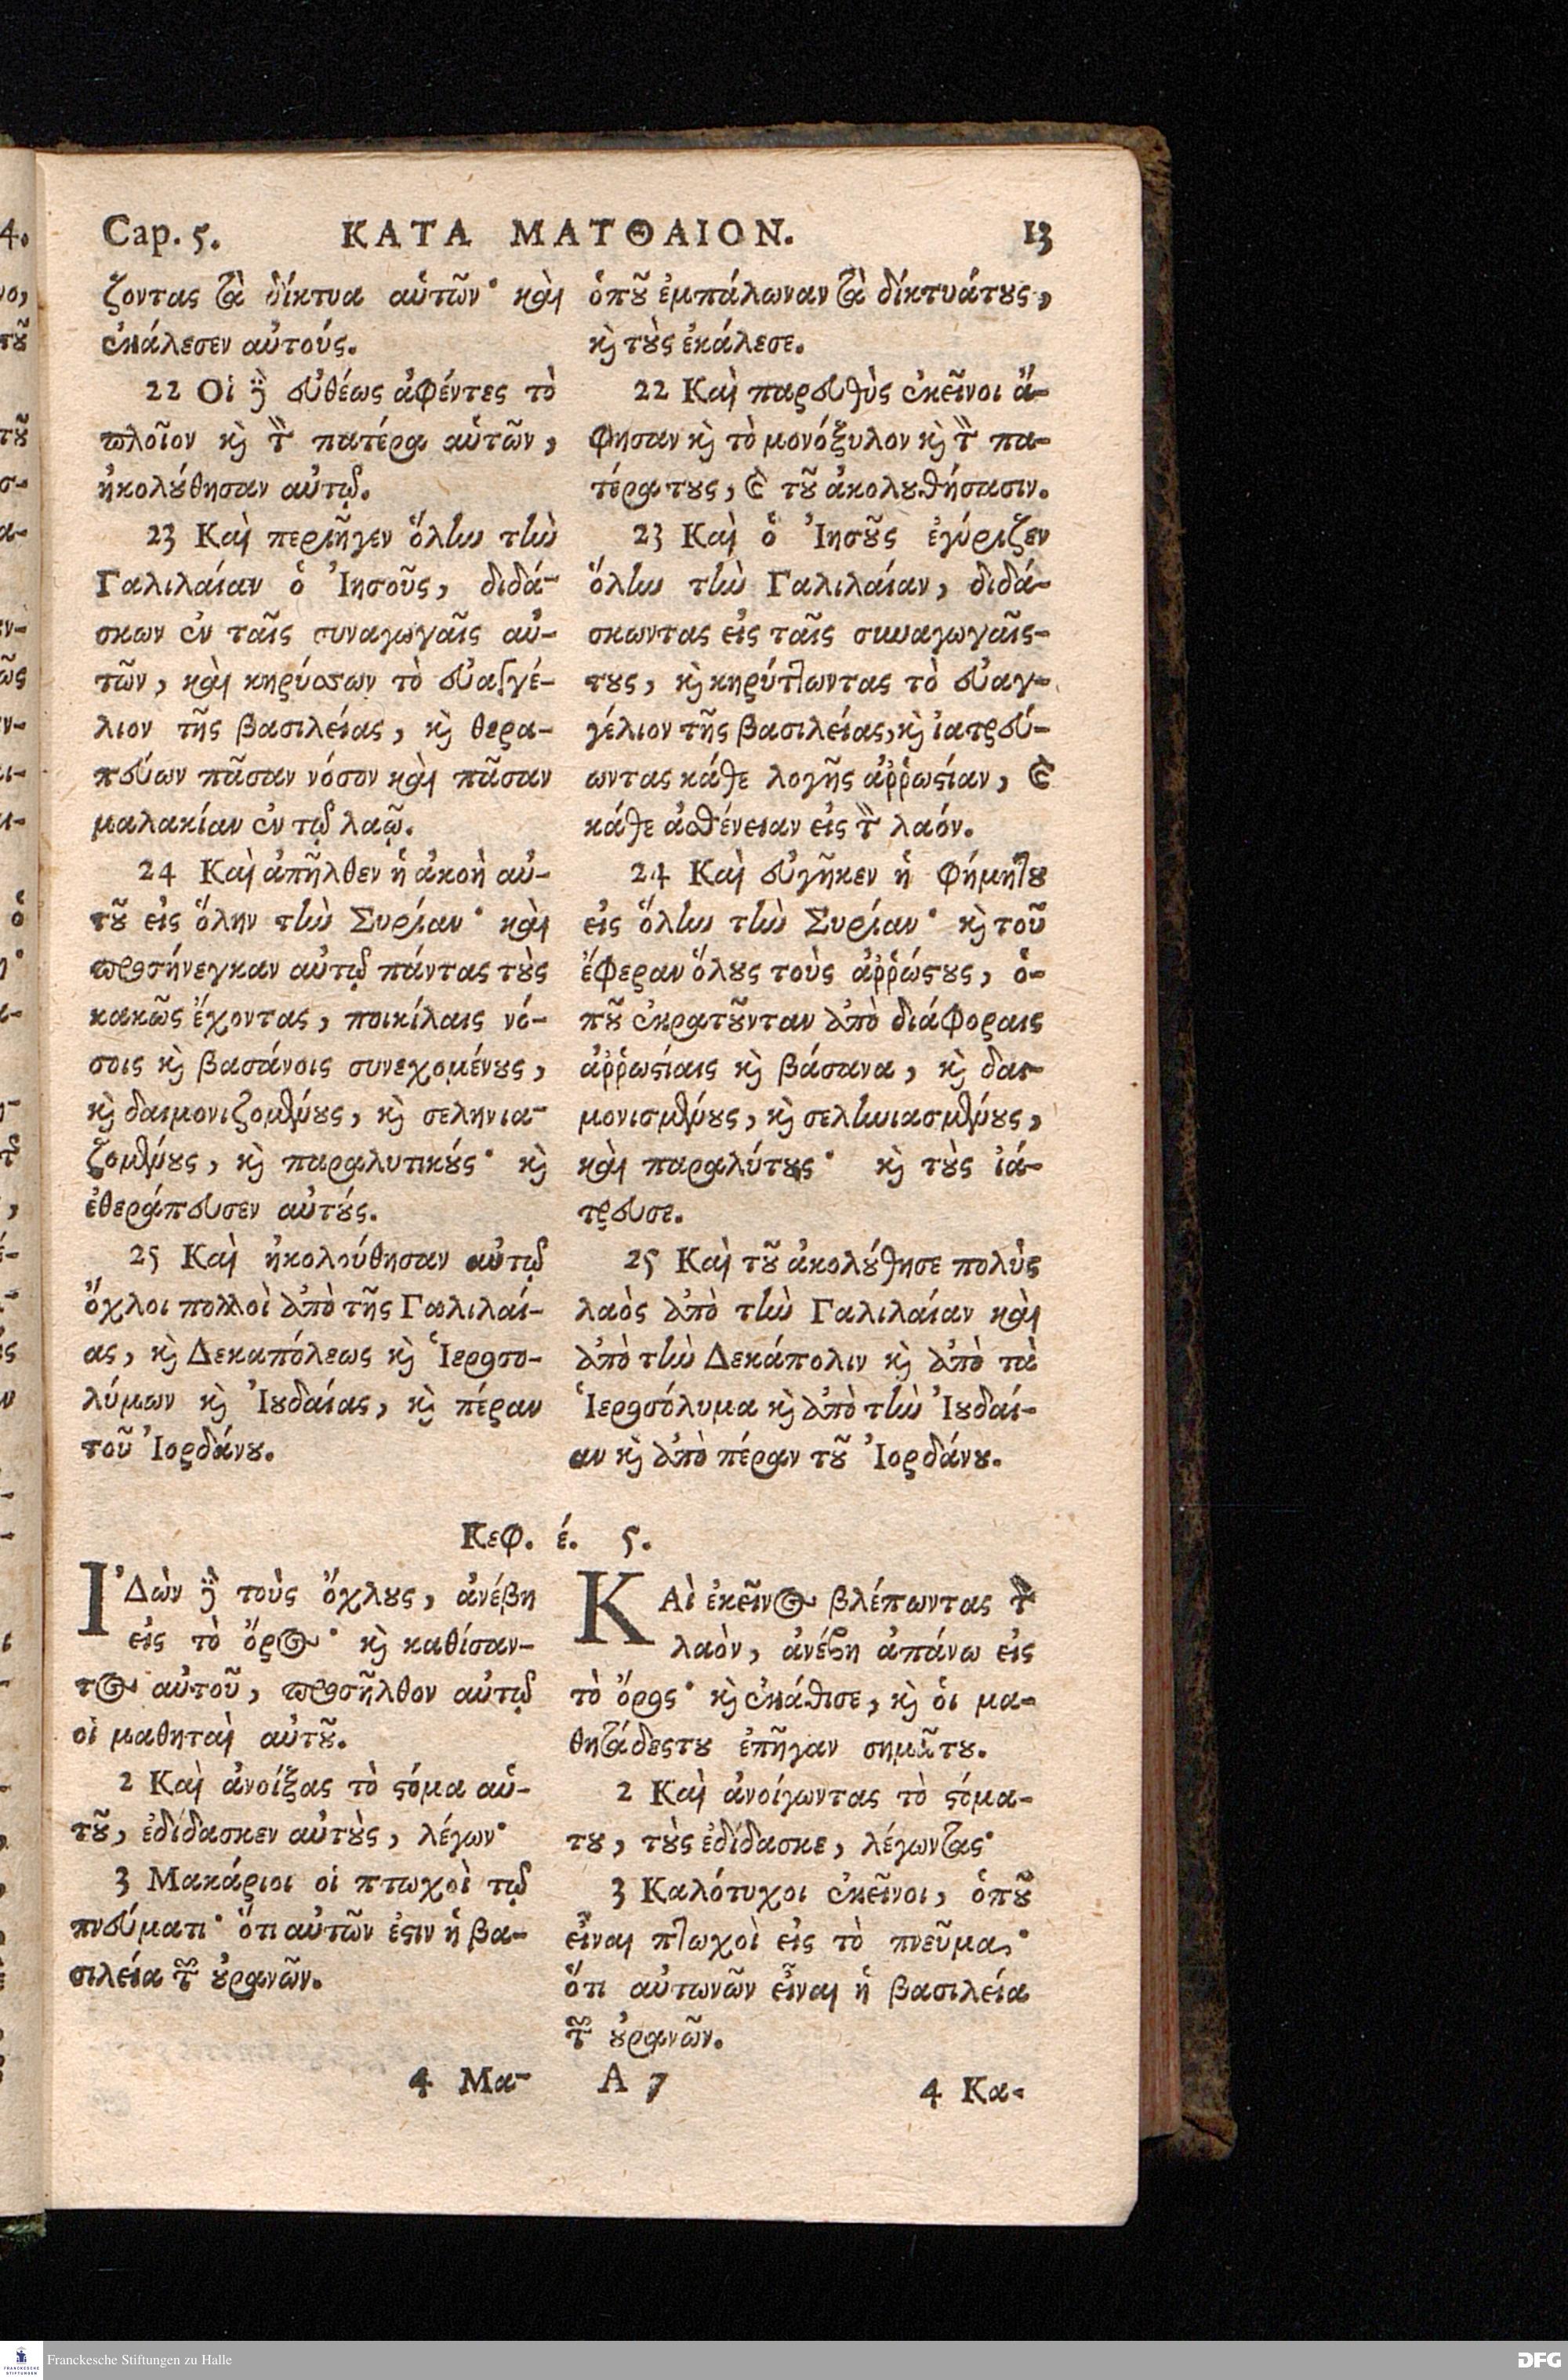 Cap. 5. ΚΑΤΑ ΜΑΤΘΑΙΟΝ. 13
ζοντας τὰ δίκτυα αὑτῶν· καὶ
ἐκάλεσεν αὐτούς.
22 Οἱ δὲ εὐθέως ἀφέντες τὸ
πλοῖον κ̀ τὸν πατέρα αὑτῶν,
ἠκολȣ́θησαν αὐτῷ.
23 Καὶ περιῆγεν ὅλην τὴν
Γαλιλαίαν ὁ Ἰησοῦς, διδά-
σκων ἐν ταῖς συναγωγαῖς αὐ-
τῶν, καὶ κηρύσσων τὸ εὐαγγέ-
λιον τῆς βασιλείας, κ̀ θερα-
πεύων πᾶσαν νόσον καὶ πᾶσαν
μαλακίαν ἐν τῷ λαῷ.
24 Καὶ ἀπῆλθεν ἡ ἀκοὴ αὐ-
τȣ͂ εἰς ὅλην τὴν Συρίαν· καὶ
προσήνεγκαν αὐτῷ πάντας τȣ̀ς
κακῶς ἔχοντας, ποικίλαις νό-
σοις κ̀ βασάνοις συνεχομένȣς,
κ̀ δαιμονιζομένȣς, κ̀ σεληνια-
ζομένȣς, κ̀ παραλυτικȣ́ς· κ̀
ἐθεράπευσεν αὐτȣ́ς.
25 Καὶ ἠκολούθησαν αὐτῷ
ὄχλοι πολλοὶ ἀπὸ τῆς Γαλιλαί-
ας, κ̀ Δεκαπόλεως κ̀ Ἱεροσο-
λύμων κ̀ Ἰȣδαίας, κ̀ πέραν
τοῦ Ἰορδάνȣ.
ὁπȣ͂ ἐμπάλωναν τὰ δίκτυάτȣς,
κ̀ τȣ̀ς ἐκάλεσε.
22 Καὶ παρευθὺς ἐκεῖνοι ἄ-
φησαν κ̀ τὸ μονόξυλον κ̀ τὸν πα-
τέρα τȣς, κ̀ τȣ͂ ἀκολȣθήσασιν.
23 Καὶ ὁ Ἰησȣ͂ς ἐγύριζεν
ὅλην τὴν Γαλιλαίαν, διδά-
σκωντας εἰς ταῖς συναγωγαῖς-
τȣς, κ̀ κηρύττωντας τὸ εὐαγ-
γέλιον τῆς βασιλείας, κ̀ ἰατρεύ-
ωντας κάθε λογῆς ἀῤῥωστίαν, κ̀
κάθε ἀσθένειαν εἰς τὸν λαόν.
24 Καὶ εὐγῆκεν ἡ φήμητȣ
εἰς ὅλην τὴν Συρίαν· κ̀ τοῦ
ἔφεραν ὅλȣς τοὺς ἀῤῥώστȣς, ὁ-
πȣ͂ ἐκρατȣ͂νταν ἀπὸ διάφοραις
ἀῤῥωστίαις κ̀ βάσανα, κ̀ δαι-
μονισμένȣς, κ̀ σεληνιασμένȣς,
καὶ παραλύτȣς· κ̀ τȣ̀ς ἰά-
τρευσε.
25 Καὶ τȣ͂ ἀκολȣ́θησε πολὺς
λαὸς ἀπὸ τὴν Γαλιλαίαν καὶ
ἀπὸ τὴν Δεκάπολιν κ̀ ἀπὸ τὰ
Ἱεροσόλυμα κ̀ ἀπὸ τὴν Ἰȣδαί-
αν κ̀ ἀπὸ πέραν τȣ͂ Ἰορδάνȣ.
Κεφ. έ. 5.
ἸΔὼν δὲ τοὺς ὄχλȣς, ἀνέβη
εἰς τὸ ὄρος· κ̀ καθίσαν-
τος αὐτοῦ, προσῆλθον αὐτῷ
οἱ μαθηταὶ αὐτȣ͂.
2 Καὶ ἀνοίξας τὸ στόμα αὑ-
τȣ͂, ἐδίδασκεν αὐτȣ̀ς, λέγων·
3 Μακάριοι οἱ πτωχοὶ τῷ
πνεύματι· ὅτι αὐτῶν ἐστιν ἡ βα-
σιλεία τῶν ȣ̓ρανῶν.
ΚΑὶ ἐκεῖνος βλέπωντας τὸν
λαὸν, ἀνέβη ἀπάνω εἰς
τὸ ὄρος· κ̀ ἐκάθισε, κ̀ ὁι μα-
θητάδεςτȣ ἐπῆγαν σημάτȣ.
2 Καὶ ἀνοίγωντας τὸ στόμα-
τȣ, τȣ̀ς ἐδίδασκε, λέγωντας·
3 Καλότυχοι ἐκεῖνοι, ὁπȣ͂
εἶναι πτωχοὶ εἰς τὸ πνεῦμα·
ὅτι αὐτωνῶν εἶναι ἡ βασιλεία
τῶν ȣ̓ρανῶν.
4 Μα- Α 7 4 Κα-
Franckesche Stiftungen zu Halle
DFG